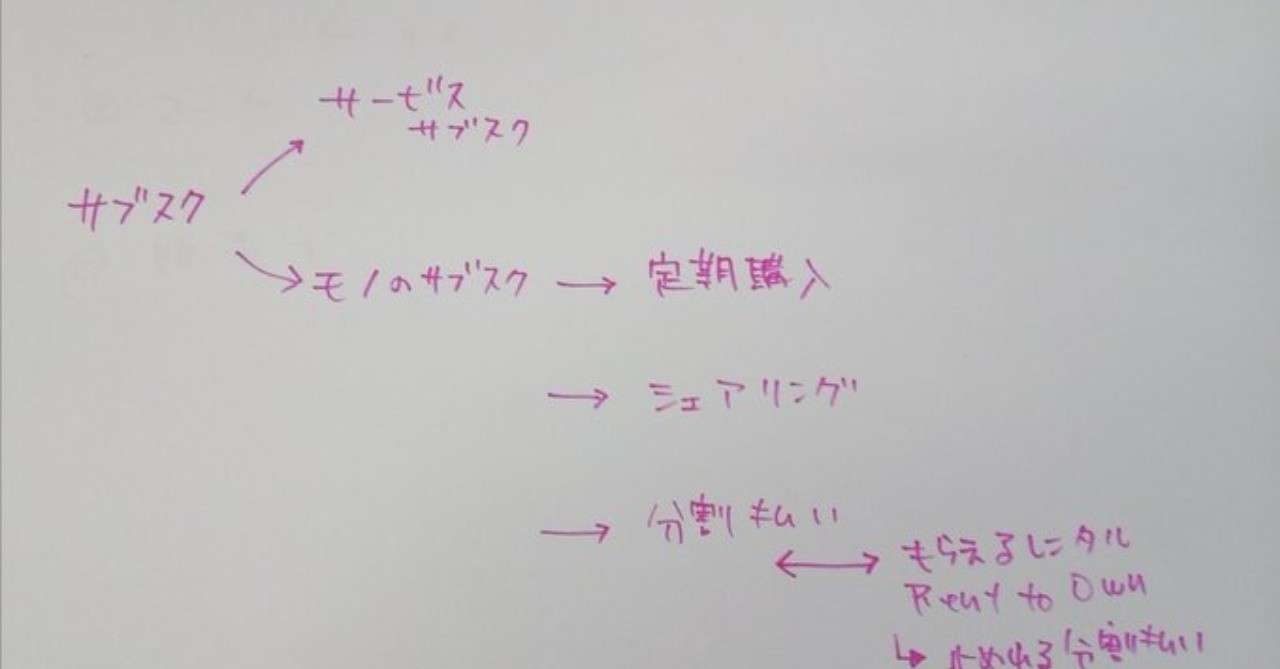 サービス
サブスク
サブスク
モノのサブスク → 定期購入
→ シェアリング
→ 分割払い
↔ もらえるレンタル
Rent to Own
↳ 止めれる分割払い